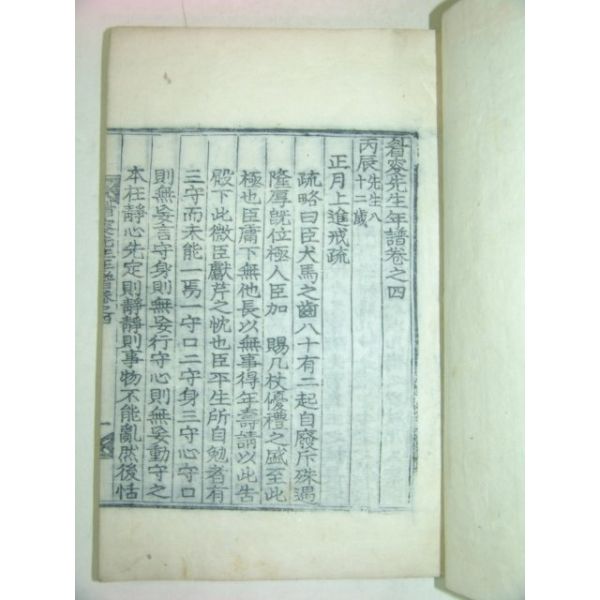 眉叟先生年譜卷之四
丙辰先生八十二歲
正月上進戒疏
疏略曰臣犬馬之齒八十有二起自廢斥殊遇
隆厚旣位極人臣加 賜几杖優禮之盛至此
極也臣庸下無他長以無事得年壽請以此告
殿下此微臣獻芹之忱也臣平生所自勉者有
三守而未能一焉 守口二守身三守心守口
則無妄言守身則無妄行守心則無妄動守之
本在靜心先定則靜靜則事物不能亂然後恬